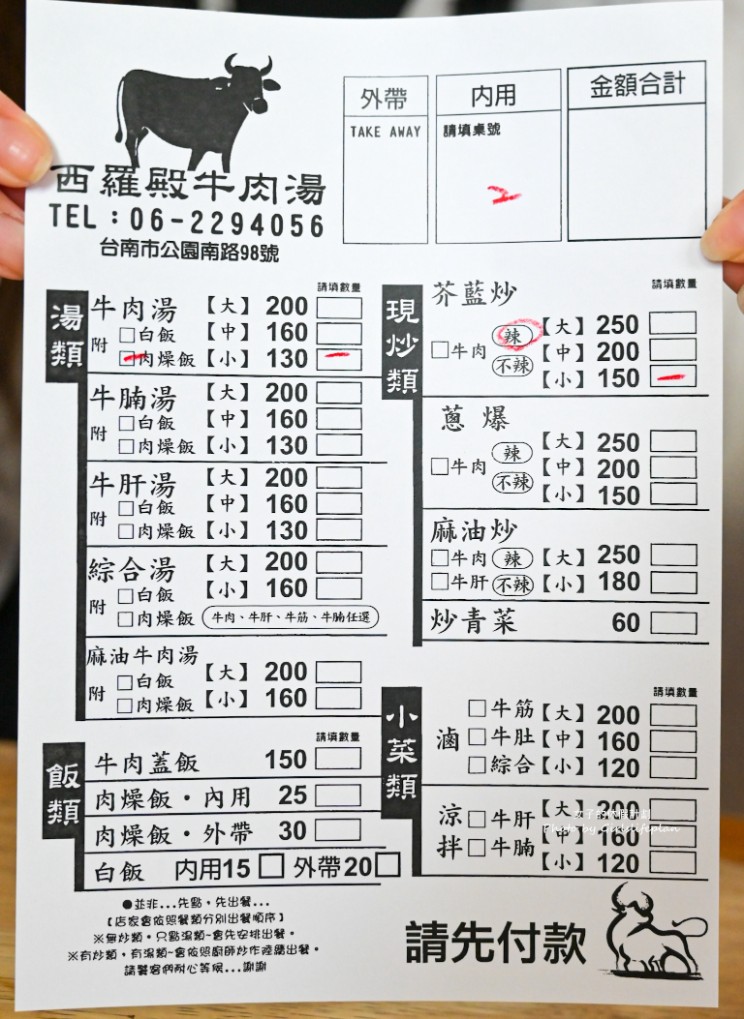 西羅殿牛肉湯
TEL：06-2294056
台南市公園南路98號
外帶
TAKE AWAY
內用
請填桌號
2
金額合計
湯類
請填數量
牛肉湯【大】200
附 □白飯【中】160
□肉燥飯【小】130
牛腩湯【大】200
附 □白飯【中】160
□肉燥飯【小】130
牛肝湯【大】200
附 □白飯【中】160
□肉燥飯【小】130
綜合湯【大】200
附 □白飯【小】160
□肉燥飯 牛肉、牛肝、牛筋、牛腩任選
麻油牛肉湯【大】200
附 □白飯
□肉燥飯【小】160
飯類
請填數量
牛肉蓋飯 150
肉燥飯・內用 25
肉燥飯・外帶 30
白飯 內用15 □ 外帶20 □
現炒類
請填數量
芥藍炒
□牛肉 辣 不辣
【大】250
【中】200
【小】150
蔥爆
□牛肉 辣 不辣
【大】250
【中】200
【小】150
麻油炒
□牛肉 辣【大】250
□牛肝 不辣【小】180
炒青菜 60
小菜類
請填數量
滷
□牛筋【大】200
□牛肚【中】160
□綜合【小】120
涼拌
□牛肝【大】200
□牛腩【中】160
【小】120
●並非...先點，先出餐...
【店家會依照餐類分別出餐順序】
※無炒類，只點湯類~會先安排出餐。
※有炒類，有湯類~會依照廚師炒作陸續出餐。
請饕客們耐心等候...謝謝
請先付款